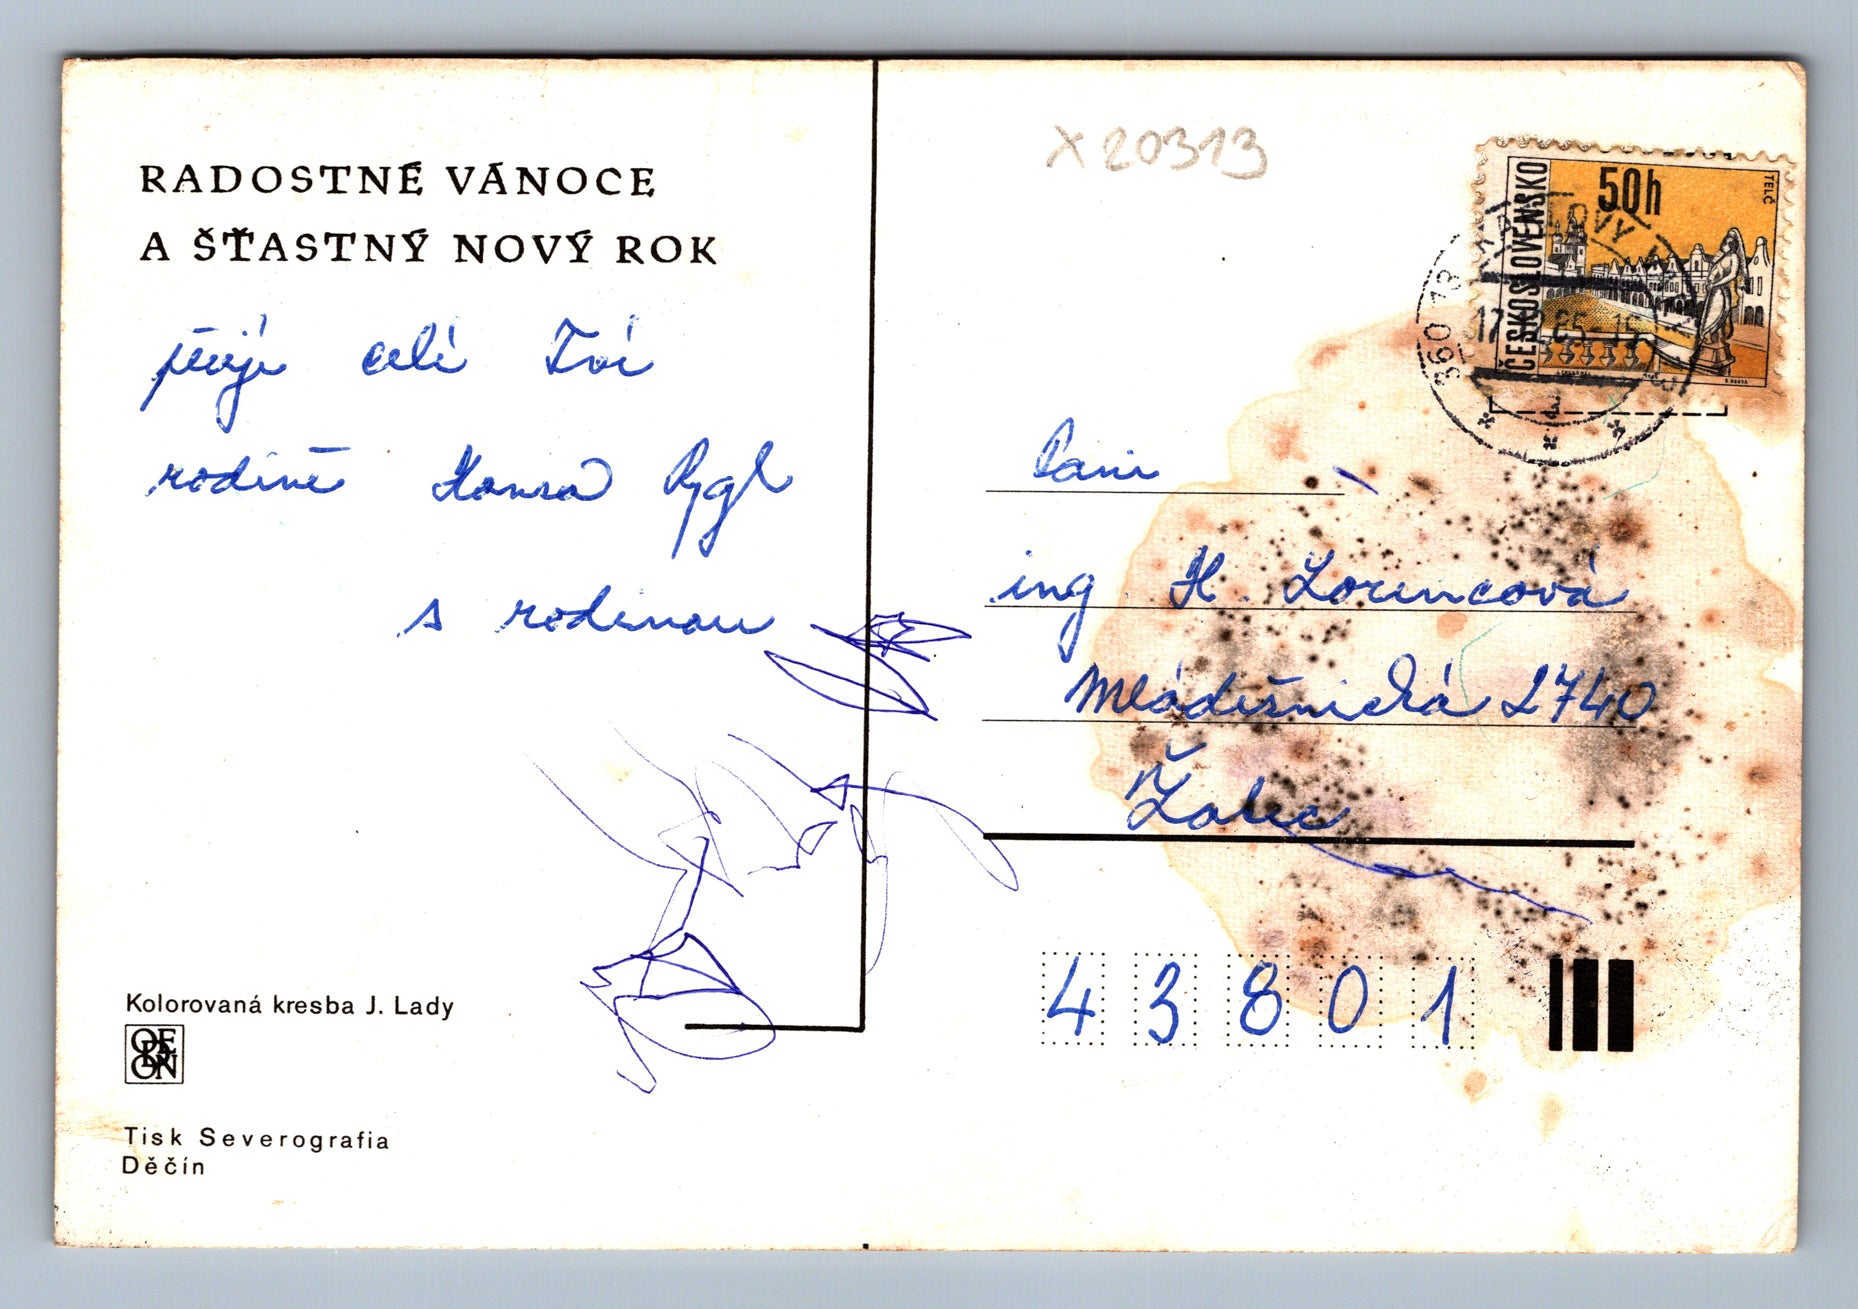 RADOSTNÉ VÁNOCE
A ŠŤASTNÝ NOVÝ ROK
přeje celé Tvé
rodině Honza Rygl
s rodinou
Kolorovaná kresba J. Lady
ODEON
Tisk Severografia
Děčín
X 20313
50h
ČESKOSLOVENSKO
TELČ
360 13
17
85-15
Paní
ing. H. Lorencová
Mládežnická 2740
Žatec
43801